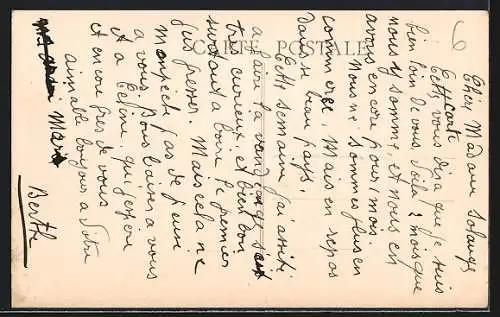 CARTE POSTALE
6
Chère Madame Solange
Cette carte
vous dira que je suis
bien loin de vous. Voila 2 mois que
nous y somme. et nous en
avons encore pour 1 mois.
Nous ne sommes plus en
commerce Mais en repos
dans se beau pays.
Cette semaine j'ai assité
a faire la vendange s'est
très curieux. et bien bon
surtout a boire le premier
jus presser. Mais cela ne
m'enpèche pas de penser
a vous. Bons baisers a vous
et a Céline. qui j'espère
et encore près de vous
aimable bonjour a Votre
Mari
Berthe